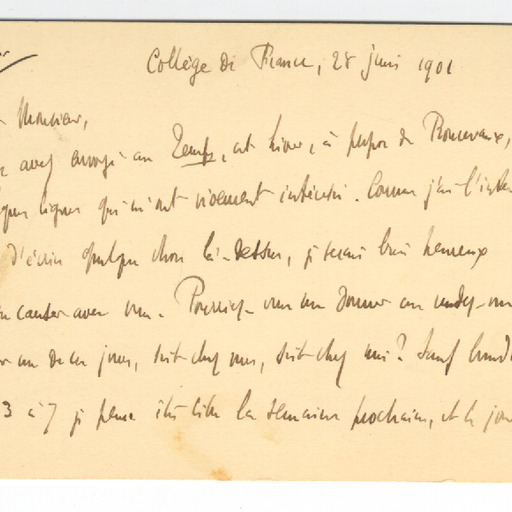 Collège de France, 28 juin 1901
Monsieur,
avez envoyé au Temps, cet hiver, à propos de Roncevaux,
lignes qui m'ont vivement intéressé. Comme j'ai l'inten
d'écrire quelque chose là-dessus, je serais bien heureux
causer avec vous. Pourriez-vous me donner un rendez-vous
un de ces jours, soit chez vous, soit chez moi? Sauf lundi
3 à 7 je peux être libre la semaine prochaine, et le jou